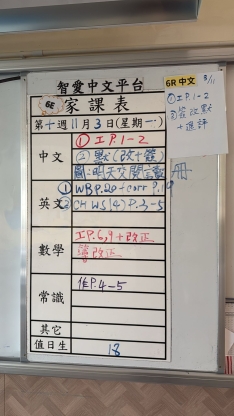 智愛中文平台
6E
家課表
第十週11月3日(星期一)
中文
① 工P.1-2
② 默(改+簽)
圖:明天交閱讀冊
英文
① WB P.20 + corr P.19
② CH WS(4) P.3-5
數學
工P.6,9+改正
簿改正
常識
作P.4-5
其它
值日生
18
6R 中文 3/11
① 工P.1-2